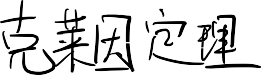 克莱因定理